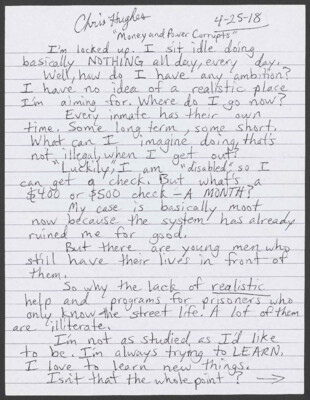 Chris Hughes 4-25-18
"Money and Power Corrupts"
I'm locked up. I sit idle doing
basically NOTHING all day, every day.
Well, how do I have any ambition?
I have no idea of a realistic place
I'm aiming for. Where do I go now?
Every inmate has their own
time. Some long term, some short.
What can I imagine doing, that's
not illegal, when I get out?
"Luckily," I am "disabled" so I
can get a check. But what's a
$400 or $500 check - A MONTH?
My case is basically moot
now because the system has already
ruined me for good.
But there are young men who
still have their lives in front of
them.
So why the lack of realistic
help and programs for prisoners who
only know the street life. A lot of them
are illiterate.
I'm not as studied as I'd like
to be. I'm always trying to LEARN.
I love to learn new things.
Isn't that the whole point? →